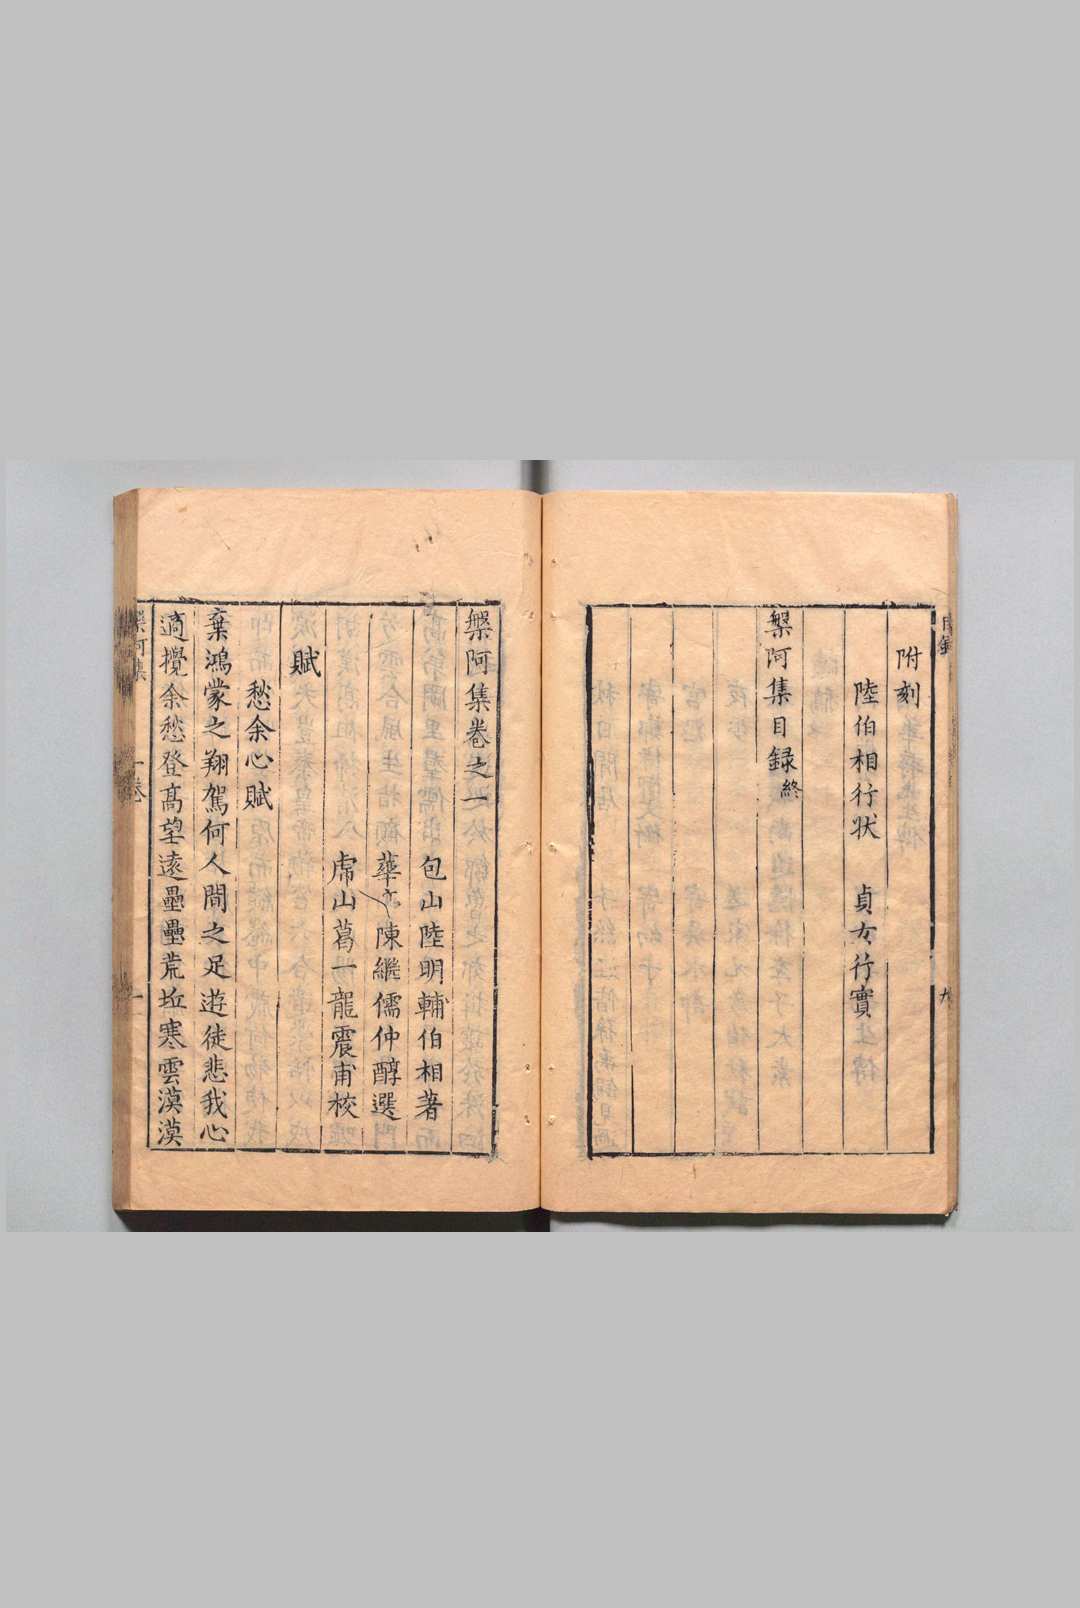 附刻
陸伯相行状　貞女行實
槃阿集目録終
槃阿集卷之一
包山陸明輔伯相著
華亭陳繼儒仲醇選
虎山葛一龍震甫校
賦
愁余心賦
棄鴻蒙之翔駕何人間之足遊徒悲我心
適攪余愁登髙望逺壘壘荒丘寒雲漠漠
槃阿集
一卷
一